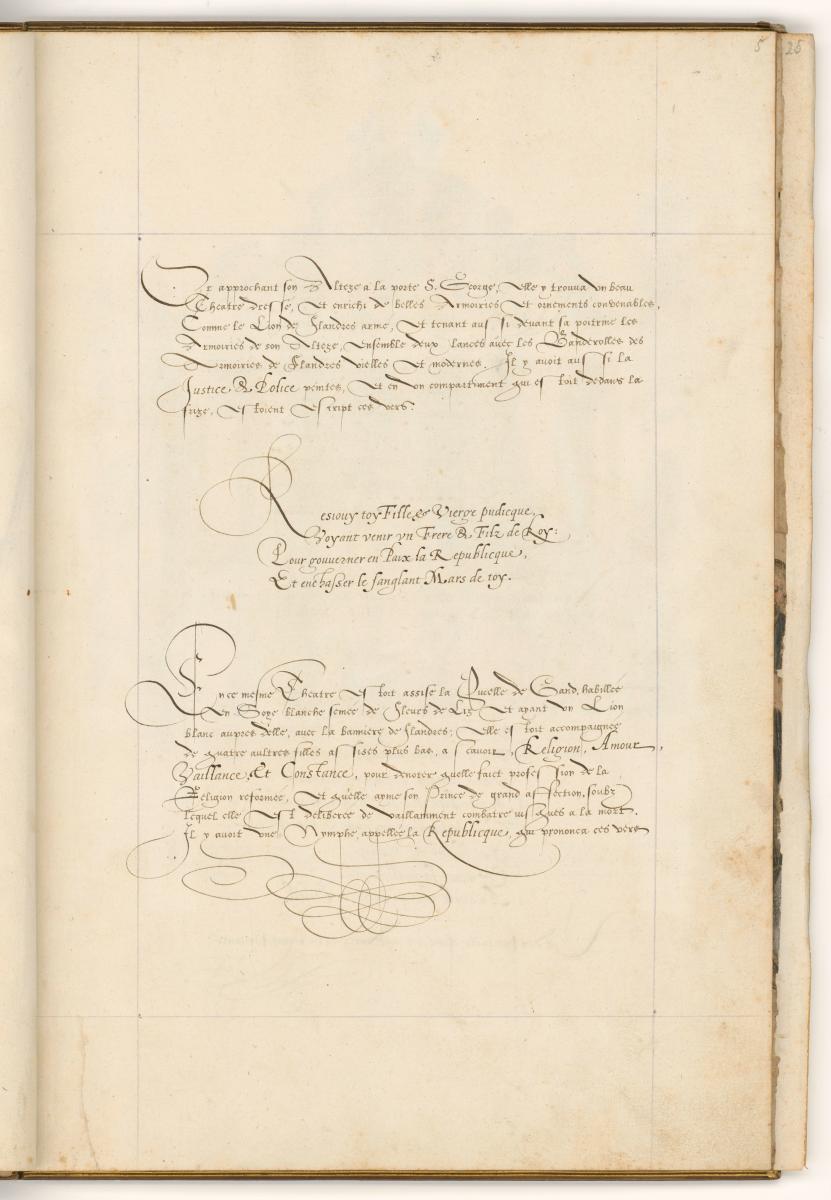 5 25
Or approchant son Alteze a la porte S. George, elle y trouva un beau
Theatre dresse, et enrichi de belles Armoiries et ornements convenables,
Comme le Lion de Flandres arme, et tenant aussi devant sa poitrine les
Armoiries de son Alteze, ensemble deux lances avec les Banderolles des
Armoiries de Flandres vielles et modernes. Il y avoit aussi la
Justice & Police peintes, et en un compartiment qui estoit dedans la
frize, estoient escript ces vers.
Resiouy toy Fille & Vierge pudicque,
Voyant venir vn Frere & Filz de Roy:
Pour gouverner en Paix la Republicque,
Et enchasser le sanglant Mars de toy.
En ce mesme Theatre estoit assise la Pucelle de Gand, habillée
en Soye blanche semée de Fleurs de Liz et ayant un Lion
blanc aupres d'elle, avec la banniere de Flandres; elle estoit accompaignée
de quatre aultres filles assises plus bas, a scavoir, Religion, Amour,
Vaillance, Et Constance, pour denoter qu'elle faict profession de la
Religion reformée, et qu'elle ayme son Prince de grand affection, soubz
lequel elle est deliberée de vaillamment combatre iusques a la mort.
Il y avoit une Nymphe appellée la Republicque, qui prononca ces vers